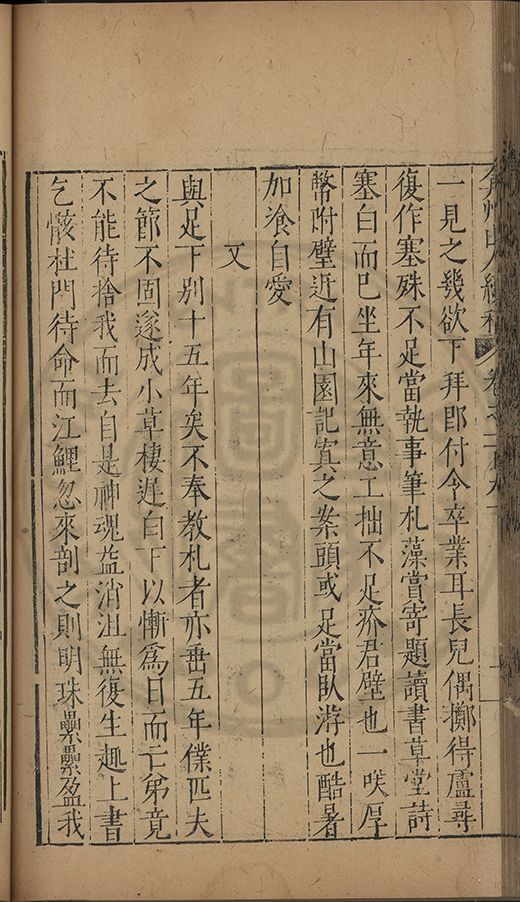 弇州山人續稿 卷之二百九
一見之幾欲下拜郎付令卒業耳長兒偶擲得盧尋
復作塞殊不足當執事筆札藻賞寄題讀書草堂詩
塞白而已坐年來無意工拙不足疥君壁也一咲厚
幣附璧近有山園記寘之案頭或足當臥游也酷暑
加飡自愛
又
與足下別十五年矣不奉教札者亦垂五年僕匹夫
之節不固遂成小草棲遲白下以慚為日而亡弟竟
不能待捨我而去自是神魂益消沮無復生趣上書
乞骸杜門待命而江鯉忽來剖之則明珠纍纍盈我